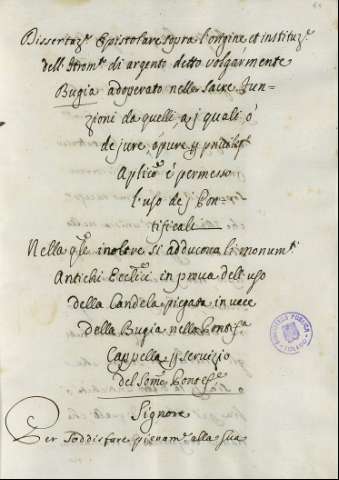 Dissertaz.e Epistolare sopra l'origine et instituz.e
dell'Strom.to di argento detto volgarmente
Bugia adoperato nelle sacre Fun=
zioni da quelli, a j quali ò
de jure, ópure p privileg.o
Aplic.o é permesso
l'uso dej Pon=
tificali
Nella q.le inoltre si adducono li monum.ti
Antichi Eccl.ici in prova dell'uso
della Candela piegata in vece
della Bugia nella Pontif.a
Cappella p servizio
del Som.o Pontef.e
Signore
Per soddisfare pienam.e alla sua